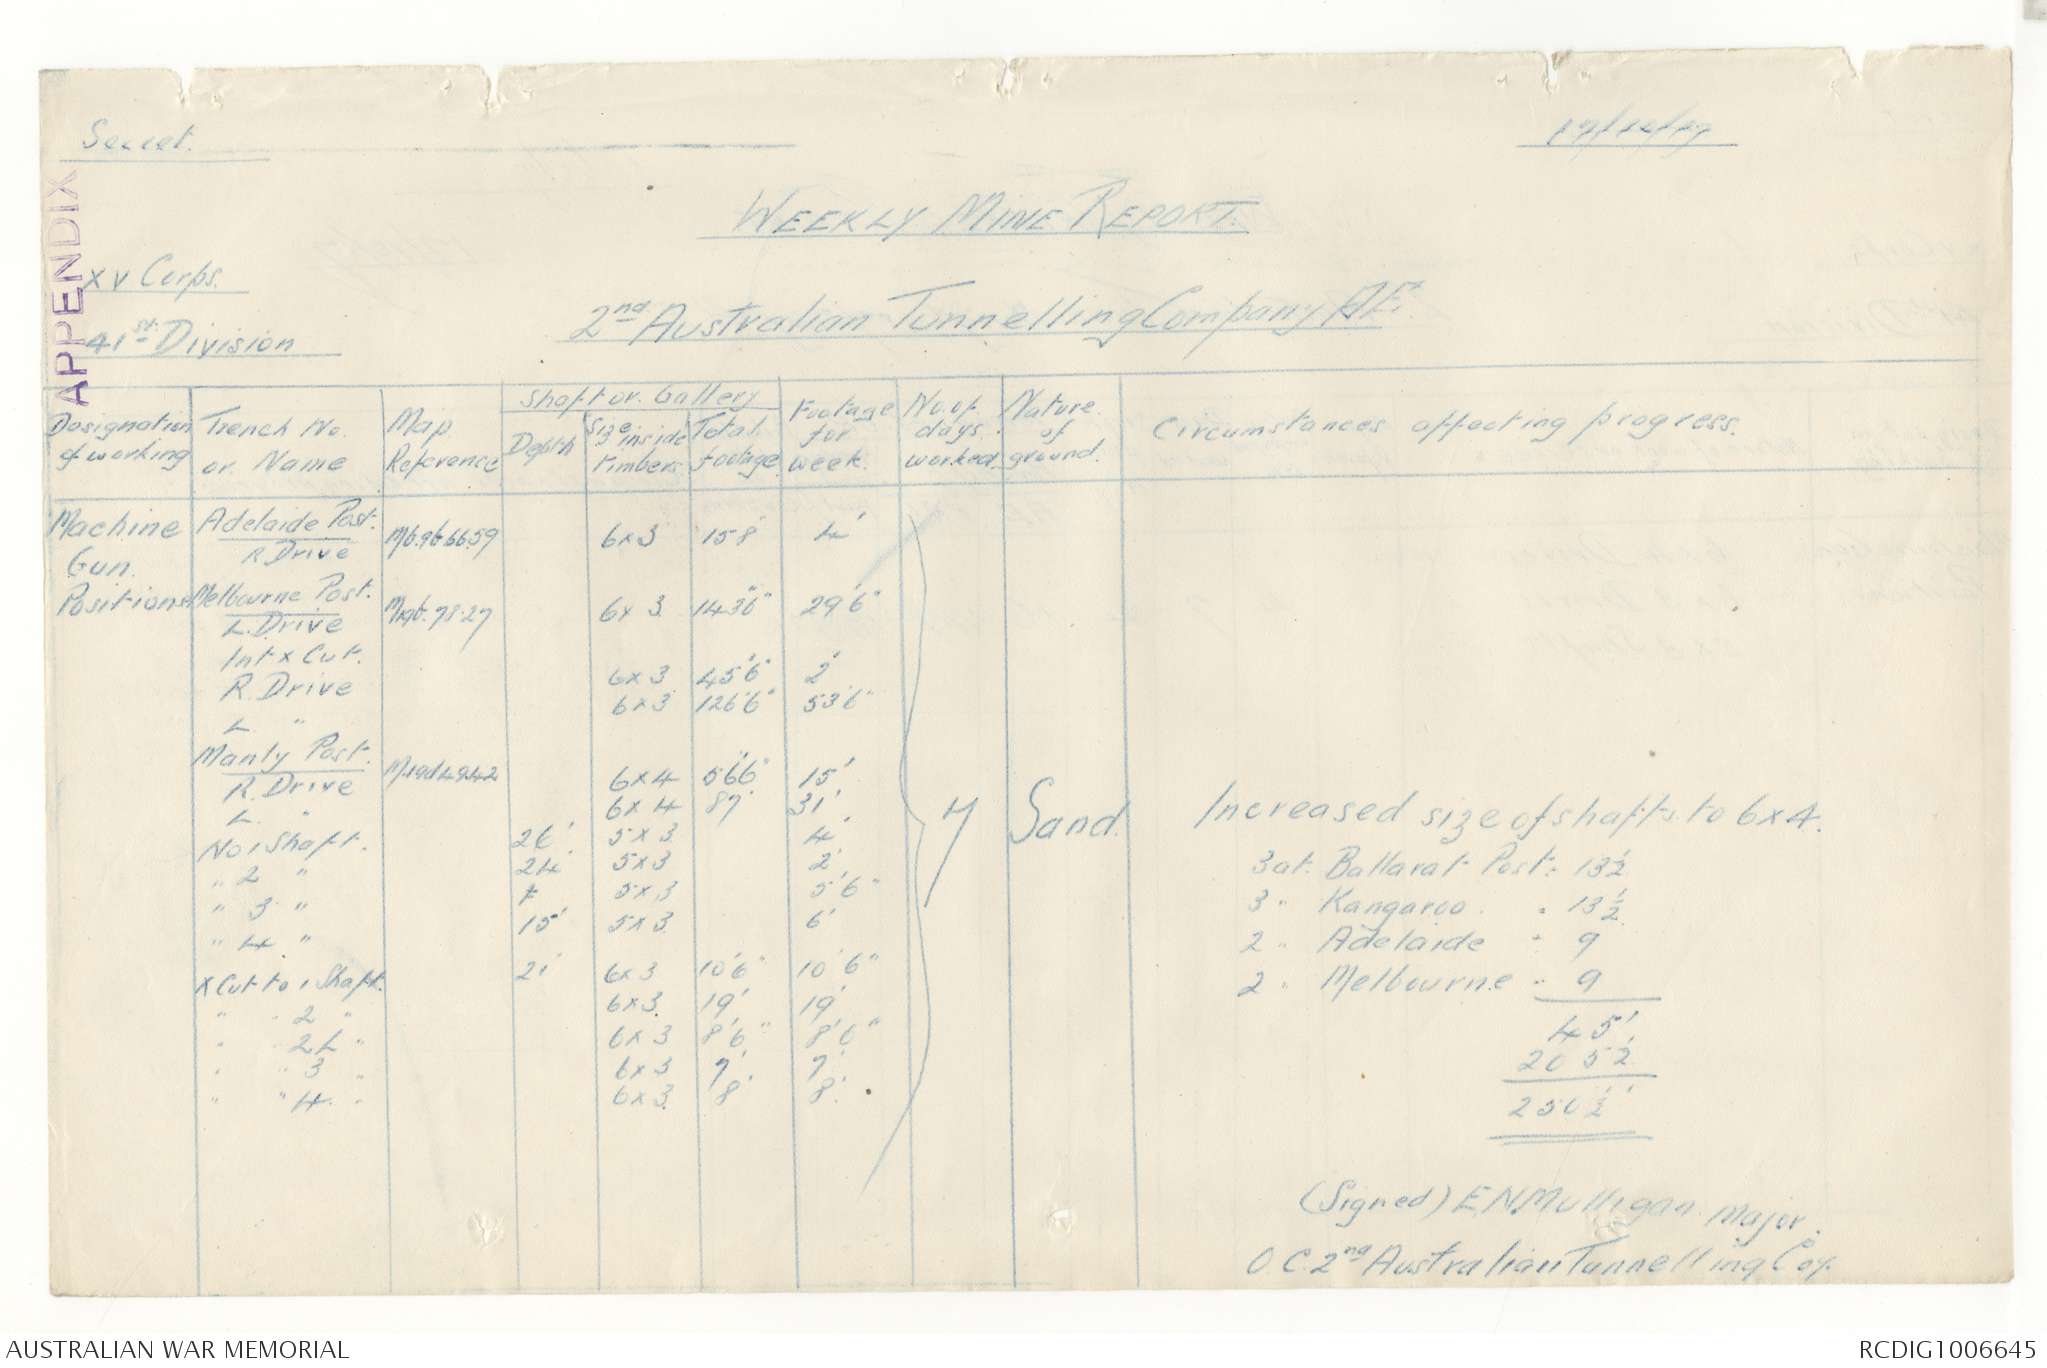 Secret.
APPENDIX
WEEKLY MINE REPORT.
XV Corps.
2nd Australian Tunnelling Company A.E.
41st Division
Designation of working
Trench No. or. Name
Map Reference
Shaft or. Gallery
Depth
Size inside timbers
Total footage
Footage for week.
No. of. days. worked
Nature. of ground.
Circumstances affecting progress.
Machine Gun. Positions
Adelaide Post.
R Drive 6x3 158' 4'
Melbourne Post.
L. Drive 6x3 143'6" 29'6"
Int x Cut.
R. Drive 6x3 45'6" 2'
L " 6x3 126'6" 53'6"
Manly Post.
R. Drive 6x4 56'6" 15'
L. " 6x4 87' 31'
No 1 Shaft. 26' 5x3 4'
" 2 " 24 5x3 2'
" 3 " 5x3 5'6"
" 4 " 15' 5x3 6'
X Cut to 1 Shaft. 21' 6x3 10'6" 10'6"
" " 2 " 6x3 19' 19'
" " 2L " 6x3 8'6" 8'6"
" " 3 " 6x3 7' 7'
" " 4 " 6x3 8' 8'
7
Sand.
Increased size of shafts to 6x4.
3 at. Ballarat Post: 13½
3 " Kangaroo " 13½
2 " Adelaide " 9
2 " Melbourne " 9
45'
205½
250½'
(Signed) E N Mulligan Major.
O.C. 2nd Australian Tunnelling Coy.
AUSTRALIAN WAR MEMORIAL
RCDIG1006645